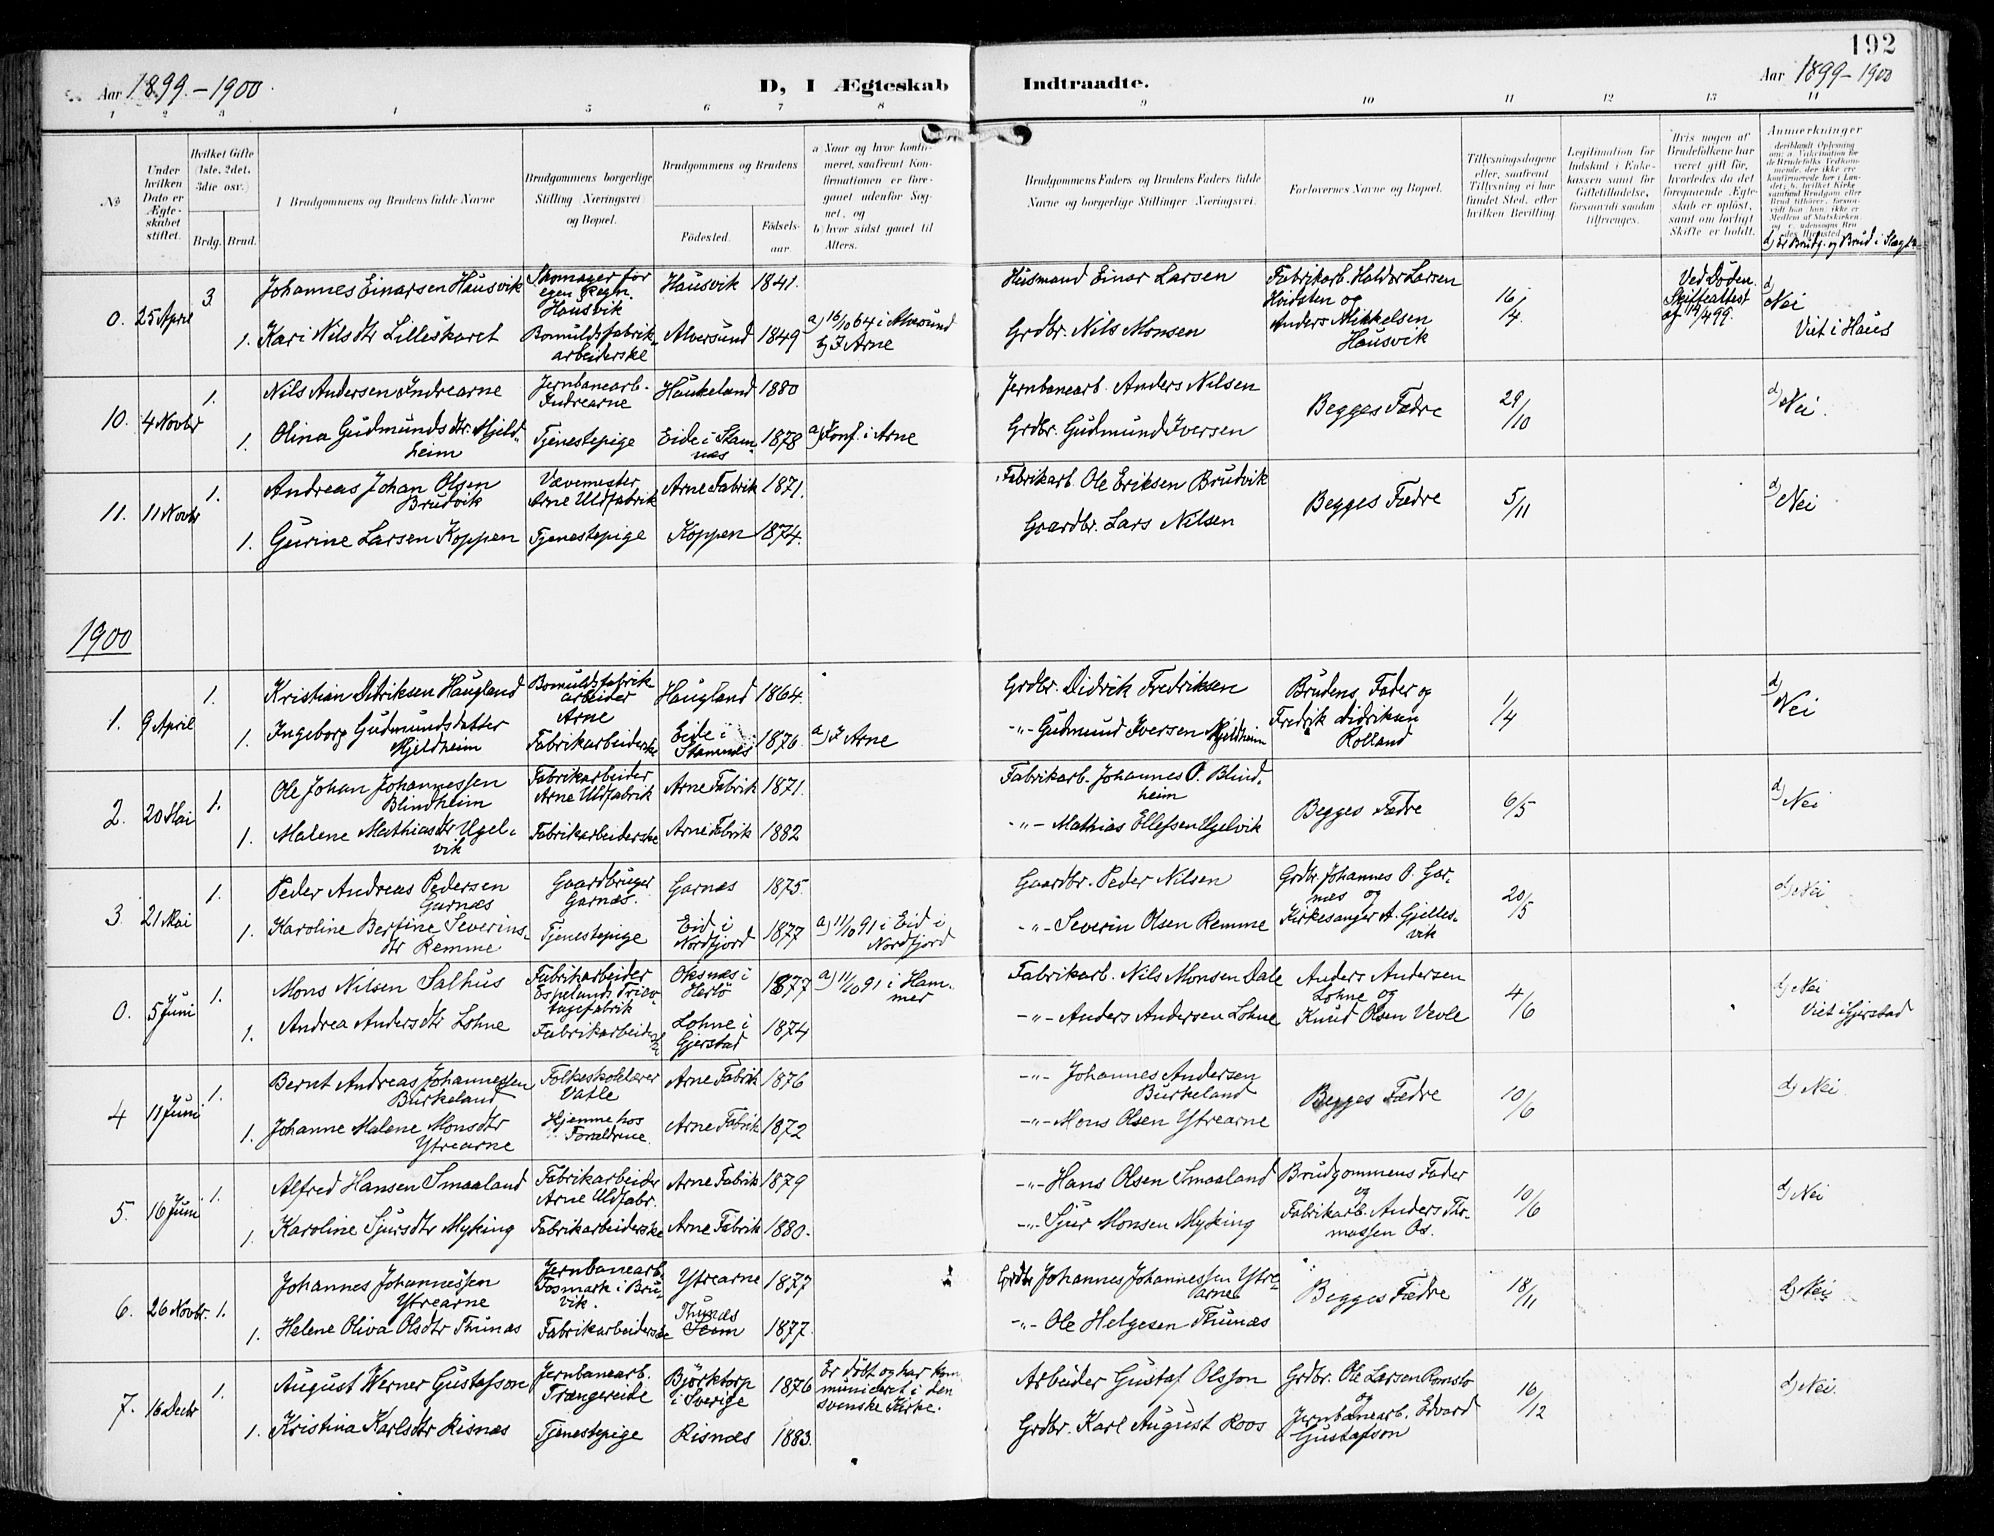 192
Aar 1899.-1900.
D, I Ægteskab Indtraadte.
Aar 1899-1900
1 2 3 4 5 6 7 8 9 10 11 12 13 14
No
Under hvilken Dato er Ægteskabet stiftet.
Hvilket Gifte (1ste, 2det, 3die osv.)
Brdg. Brud.
Brudgommens og Brudens fulde Navne
Brudgommens borgerlige Stilling Næringsvei og Bopæl.
Brudgommens og Brudens
Fødested.
Fødselsaar.
a) Naar og hvor konfirmeret, saafremt Konfirmationen er foregaaet udenfor Sognet, og
b) hvor sidst gaaet til Alters.
Brudgommens Faders og Brudens Faders fulde Navne og borgerlige Stillinger Næringsvei.
Forlovernes Navne og Bopæl.
Tillysningsdagene eller, saafremt Tillysning ei har fundet Sted, efter hvilken Bevilling
Legitimation for Indskud i Enkekassen samt for Giftetilladelse, forsaavidt saadan tiltrænges.
Hvis nogen af Brudefolkene har været gift før, hvorledes da det foregaaende Ægteskab er opløst, samt om lovligt Skifte er holdt.
Anmerkninger
d) Er Brudg. og Brud i Slægt
0. 25 April 3 Johannes Einarsen Hausvik Skomager for egen Regn. Hausvik Hausvik 1841. Husmand Einar Larsen Fabrikarb. Haldor Larsen Hvidsten og Anders Mikkelsen Hausvik 16/4. Ved Døden. Skifteattest af 14/4 99. d) Nei Viet i Haus
1. Kari Nilsdtr Lilleskaret Bomuldsfabrikarbeiderske Alversund 1849 a) 16/10 64 i Alversund b) I Arne Grdbr. Nils Monsen
10. 4 Novbr 1. Nils Andersen Indrearne Jernbanearb. Indrearne Haukeland 1880 Jernbanearb. Anders Nilsen Begges Fædre 29/10 d) Nei.
1. Olina Gudmundsdtr Mjeldheim Tjenestepige Eide i Stamnæs 1878 a) Konf. i Arne Grdbr. Gudmund Iversen
11. 11 Novbr 1. Andreas Johan Olsen Brudvik Vævemester Arne Uldfabrik Arne Fabrik 1871. Fabrikarb. Ole Eriksen Brudvik Begges Fædre 5/11 d) Nei
1. Gurine Larsen Koppen Tjenestepige Koppen 1874. Gaardbr. Lars Nilsen
1900
1. 9 April 1. Kristian Didriksen Haugland Bomuldsfabrik arbeider Arne Haugland 1864. Grdbr. Didrik Fredriksen Brudens Fader og Fredrik Didriksen Rolland 1/4 d) Nei
1. Ingeborg Gudmundsdatter Mjeldheim Fabrikarbeiderske Eide i Stamnes 1876. a) I Arne -"- Gudmund Iversen Mjeldheim
2. 20 Mai 1. Ole Johan Johannessen Blindheim Fabrikarbeider Arne Uldfabrik Arne Fabrik 1871. Fabrikarb. Johannes O. Blindheim Begges Fædre 6/5 d) Nei
1. Malene Mathiasdtr Ugelvik Fabrikarbeiderske Arne Fabrik 1882 -"- Mathias Ellefsen Ugelvik
3. 21 Mai 1. Peder Andreas Pedersen Garnæs Gaardbruger Garnæs. Garnæs 1875. Gaardbr. Peder Nilsen Grdbr. Johannes O. Garnæs og Kirkesanger A. Gjellesvik 20/5 d) Nei
1. Karoline Berfine Severinsdtr Remme Tjenestepige Eid i Nordfjord 1877 a) 11/10 91 i Eid i Nordfjord -"- Severin Olsen Remme
0. 5 Juni 1. Mons Nilsen Salhus Fabrikarbeider Espelands Tricotagefabrik Oksnæs i Herlø 1877 a) 11/10 91 i Hammer Fabrikarb. Nils Monsen Dale Anders Andersen Lohne og Knud Olsen Vevle 4/6 d) Nei Viet i Gjerstad
1. Andrea Andersdtr Lohne Fabrikarbeiderske Lohne i Gjerstad 1874 -"- Anders Andersen Lohne
4 11 Juni 1. Bernt Andreas Johannessen Burkeland Folkeskolelærer Vatle Arne Fabrik 1876 -"- Johannes Andersen Burkeland Begges Fædre 10/6 d) Nei
1. Johanne Malene Monsdtr Ytrearne Hjemme hos Forældrene. Arne Fabrik 1872 -"- Mons Olsen Ytrearne
5. 16 Juni 1. Alfred Hansen Smaaland Fabrikarbeider Arne Uldfabr. Arne Fabrik 1879 -"- Hans Olsen Smaaland Brudgommens Fader og Fabrikarb. Anders Thomassen Os. 10/6 d) Nei
1. Karoline Sjursdtr Myking Fabrikarbeiderske Arne Fabrik 1880. -"- Sjur Monsen Myking
6. 26 Novbr. 1. Johannes Johannessen Ytrearne Jernbanearb. Fosmark i Bruvik. Ytrearne 1877 Grdbr Johannes Johannessen Ytrearne Begges Fædre 18/11 d) Nei
1. Helene Oliva Olsdtr Thunæs Fabrikarbeiderske Thunæs Seim 1877. -"- Ole Helgesen Thunæs
7. 16 Decbr 1. August Werner Gustafson Jernbanearb. Trængereide Björktorp i Sverige 1876 Er døbt og har kommuniceret i den svenske Kirke. Arbeider Gustaf Olsson Grdbr. Ole Larsen Romslo og Jernbanearb. Edvard Gustafson 16/12 d) Nei.
1. Kristina Karlsdtr Risnæs Tjenestepige Risnæs 1883. Grdbr. Karl August Roos